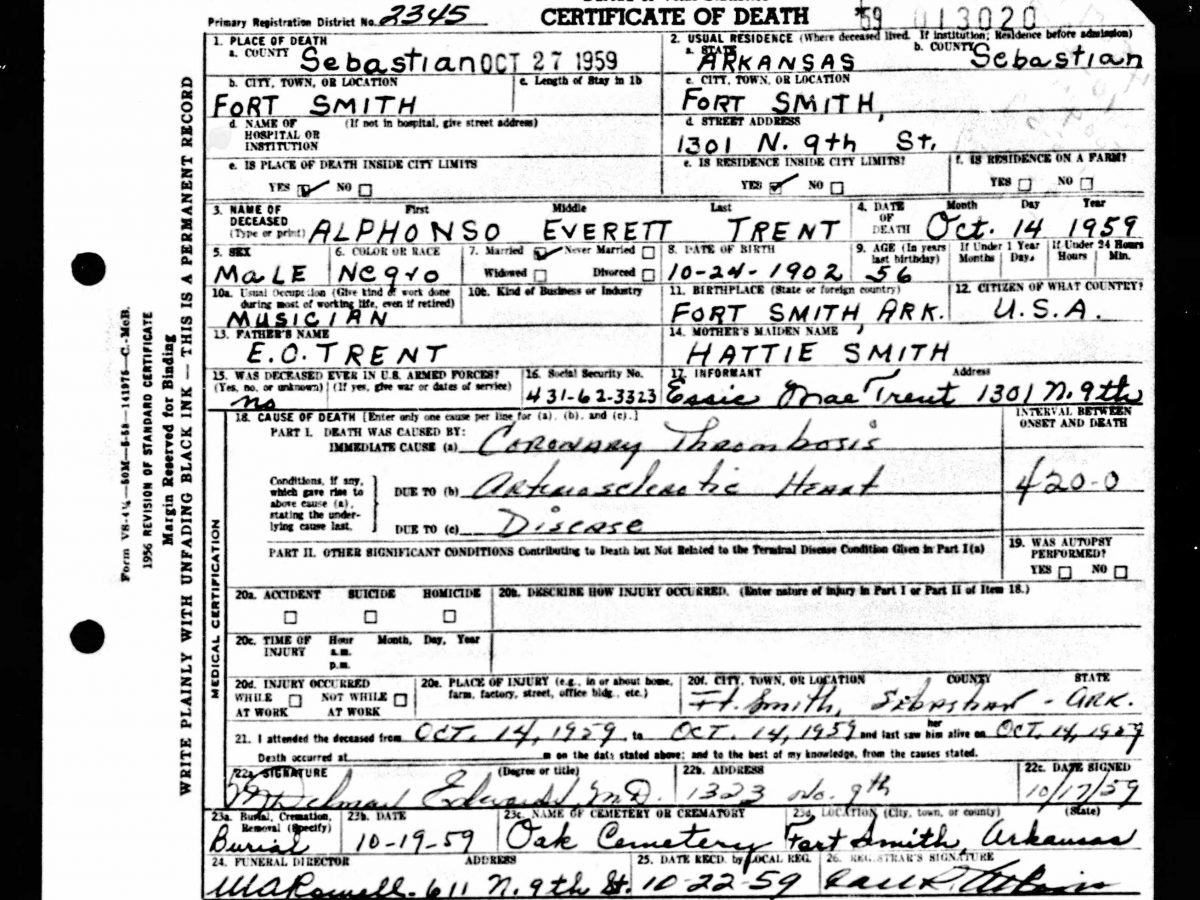 Primary Registration District No. 2345 CERTIFICATE OF DEATH 59 013020
1. PLACE OF DEATH 2. USUAL RESIDENCE (Where deceased lived. If institution; Residence before admission)
a. COUNTY Sebastian OCT 27 1959 a. STATE ARKANSAS b. COUNTY Sebastian
b. CITY, TOWN, OR LOCATION c. Length of Stay in 1b c. CITY, TOWN, OR LOCATION
FORT SMITH FORT SMITH,
d. NAME OF HOSPITAL OR INSTITUTION (If not in hospital, give street address) d. STREET ADDRESS
1301 N. 9th St.
e. IS PLACE OF DEATH INSIDE CITY LIMITS e. IS RESIDENCE INSIDE CITY LIMITS? f. IS RESIDENCE ON A FARM?
YES ✓ NO YES ✓ NO YES NO
3. NAME OF DECEASED (Type or print) First Middle Last 4. DATE OF DEATH Month Day Year
ALPHONSO EVERETT TRENT Oct. 14 1959
5. SEX 6. COLOR OR RACE 7. Married ✓ Never Married 8. DATE OF BIRTH 9. AGE (In years last birthday) If Under 1 Year Months Days If Under 24 Hours Hours Min.
MaLE Negro Widowed Divorced 10-24-1902 56
10a. Usual Occupation (Give kind of work done during most of working life, even if retired) 10b. Kind of Business or Industry 11. BIRTHPLACE (State or foreign country) 12. CITIZEN OF WHAT COUNTRY?
MUSICIAN FORT SMITH ARK. U.S.A.
13. FATHER'S NAME 14. MOTHER'S MAIDEN NAME
E.O. TRENT HATTIE SMITH
15. WAS DECEASED EVER IN U.S. ARMED FORCES? 16. Social Security No. 17. INFORMANT Address
(Yes, no, or unknown) (If yes, give war or dates of service)
no 431-62-3323 Essie Mae Trent 1301 N. 9th
18. CAUSE OF DEATH [Enter only one cause per line for (a). (b). and (c).] INTERVAL BETWEEN ONSET AND DEATH
PART I. DEATH WAS CAUSED BY:
IMMEDIATE CAUSE (a) Coronary Thrombosis
Conditions, if any, which gave rise to above cause (a), stating the underlying cause last.
DUE TO (b) Arteriosclerotic Heart 420-0
DUE TO (c) Disease
PART II. OTHER SIGNIFICANT CONDITIONS Contributing to Death but Not Related to the Terminal Disease Condition Given in Part I(a) 19. WAS AUTOPSY PERFORMED?
YES NO
20a. ACCIDENT SUICIDE HOMICIDE 20b. DESCRIBE HOW INJURY OCCURRED. (Enter nature of injury in Part I or Part II of Item 18.)
20c. TIME OF INJURY Hour a.m. p.m. Month, Day, Year
20d. INJURY OCCURRED 20e. PLACE OF INJURY (e.g., in or about home, farm, factory, street, office bldg., etc.) 20f. CITY, TOWN, OR LOCATION COUNTY STATE
WHILE AT WORK NOT WHILE AT WORK Ft. Smith, Sebastian - ARK.
21. I attended the deceased from OCT. 14, 1959 to OCT. 14, 1959 and last saw her him alive on OCT. 14, 1959
Death occurred at m on the date stated above; and to the best of my knowledge, from the causes stated.
22a. SIGNATURE (Degree or title) 22b. ADDRESS 22c. DATE SIGNED
Edwards M.D. 1323 No. 9th 10/17/59
23a. Burial, Cremation, Removal (Specify) 23b. DATE 23c. NAME OF CEMETERY OR CREMATORY 23d. LOCATION (City, town, or county) (State)
Burial 10-19-59 Oak Cemetery Fort Smith, Arkansas
24. FUNERAL DIRECTOR ADDRESS 25. DATE RECD. by LOCAL REG. 26. REGISTRAR'S SIGNATURE
611 N. 9th St. 10-22-59
Form VS-4¼—50M—5-58—141975—C.-McB.
1956 REVISION OF STANDARD CERTIFICATE
Margin Reserved for Binding
WRITE PLAINLY WITH UNFADING BLACK INK — THIS IS A PERMANENT RECORD
MEDICAL CERTIFICATION